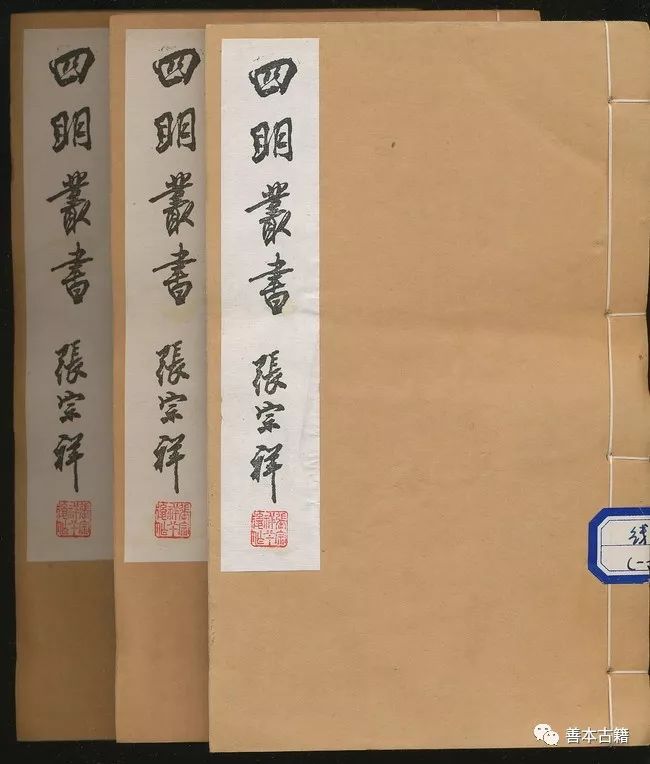 四明叢書
張宗祥
四明叢書
張宗祥
四明叢書
張宗祥
善本古籍